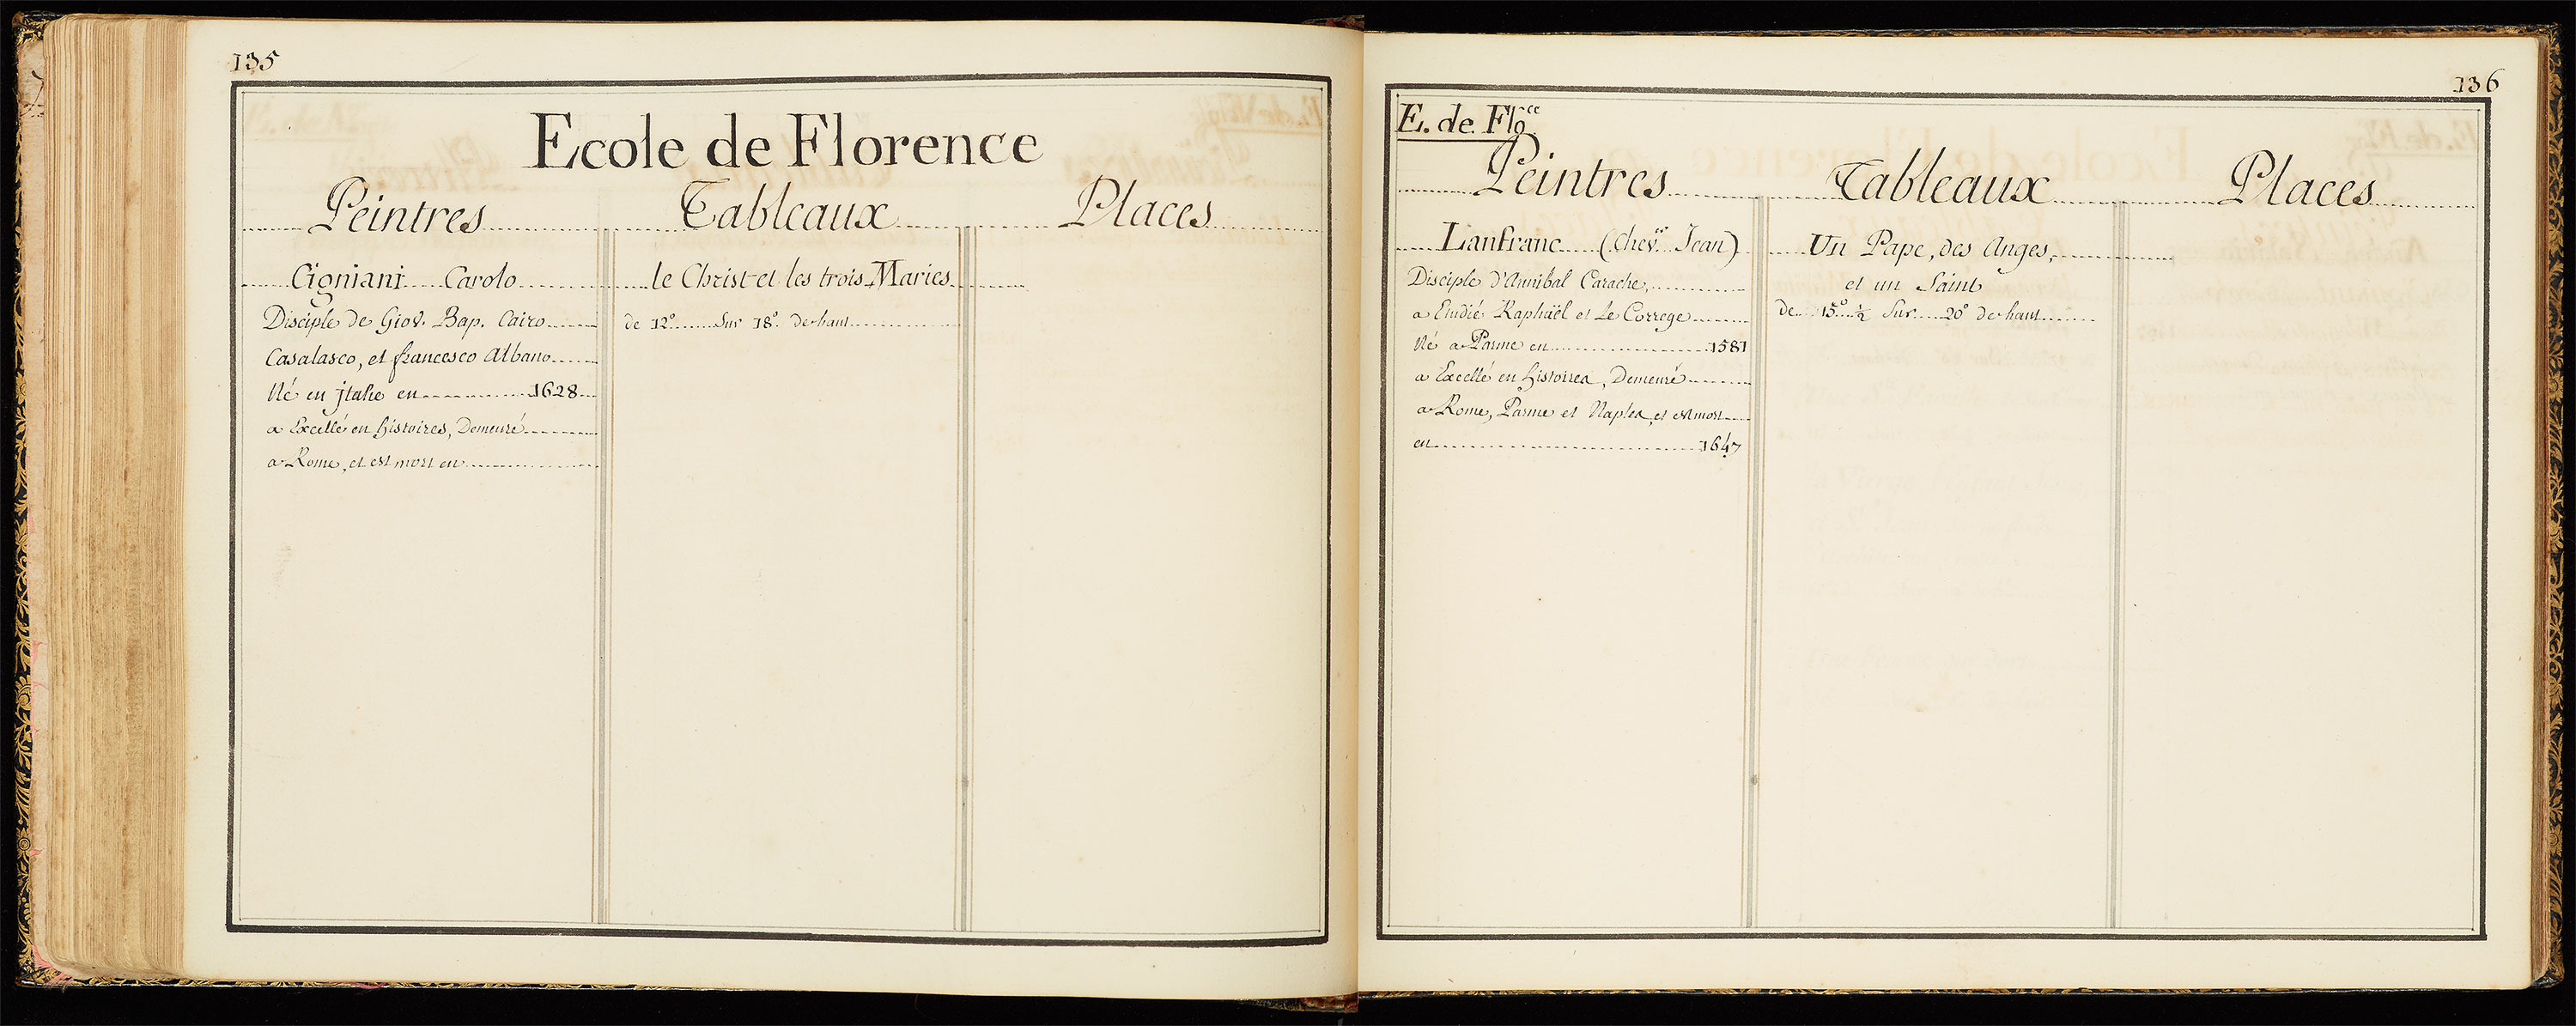 135
Ecole de Florence
Peintres Tableaux Places
Cigniani Carolo le Christ et les trois Maries
Disciple de Giov. Bap. Cairo de 12° Sur 18° de haut
Casalasco, et francesco Albano
Né en jtalie en 1628
a Excellé en histoires, Demeuré
a Rome, et est mort en
136
E. de Flo.ce
Peintres Tableaux Places
Lanfranc (Chev.er Jean) Un Pape, des Anges,
Disciple d'Annibal Carache, et un Saint
a Etudié Raphaël et Le Correge de 15° ½ Sur 20° de haut
Né a Parme en 1581
a Excellé en histoires, Demeuré
a Rome, Parme et Naples, et est mort
en 1647